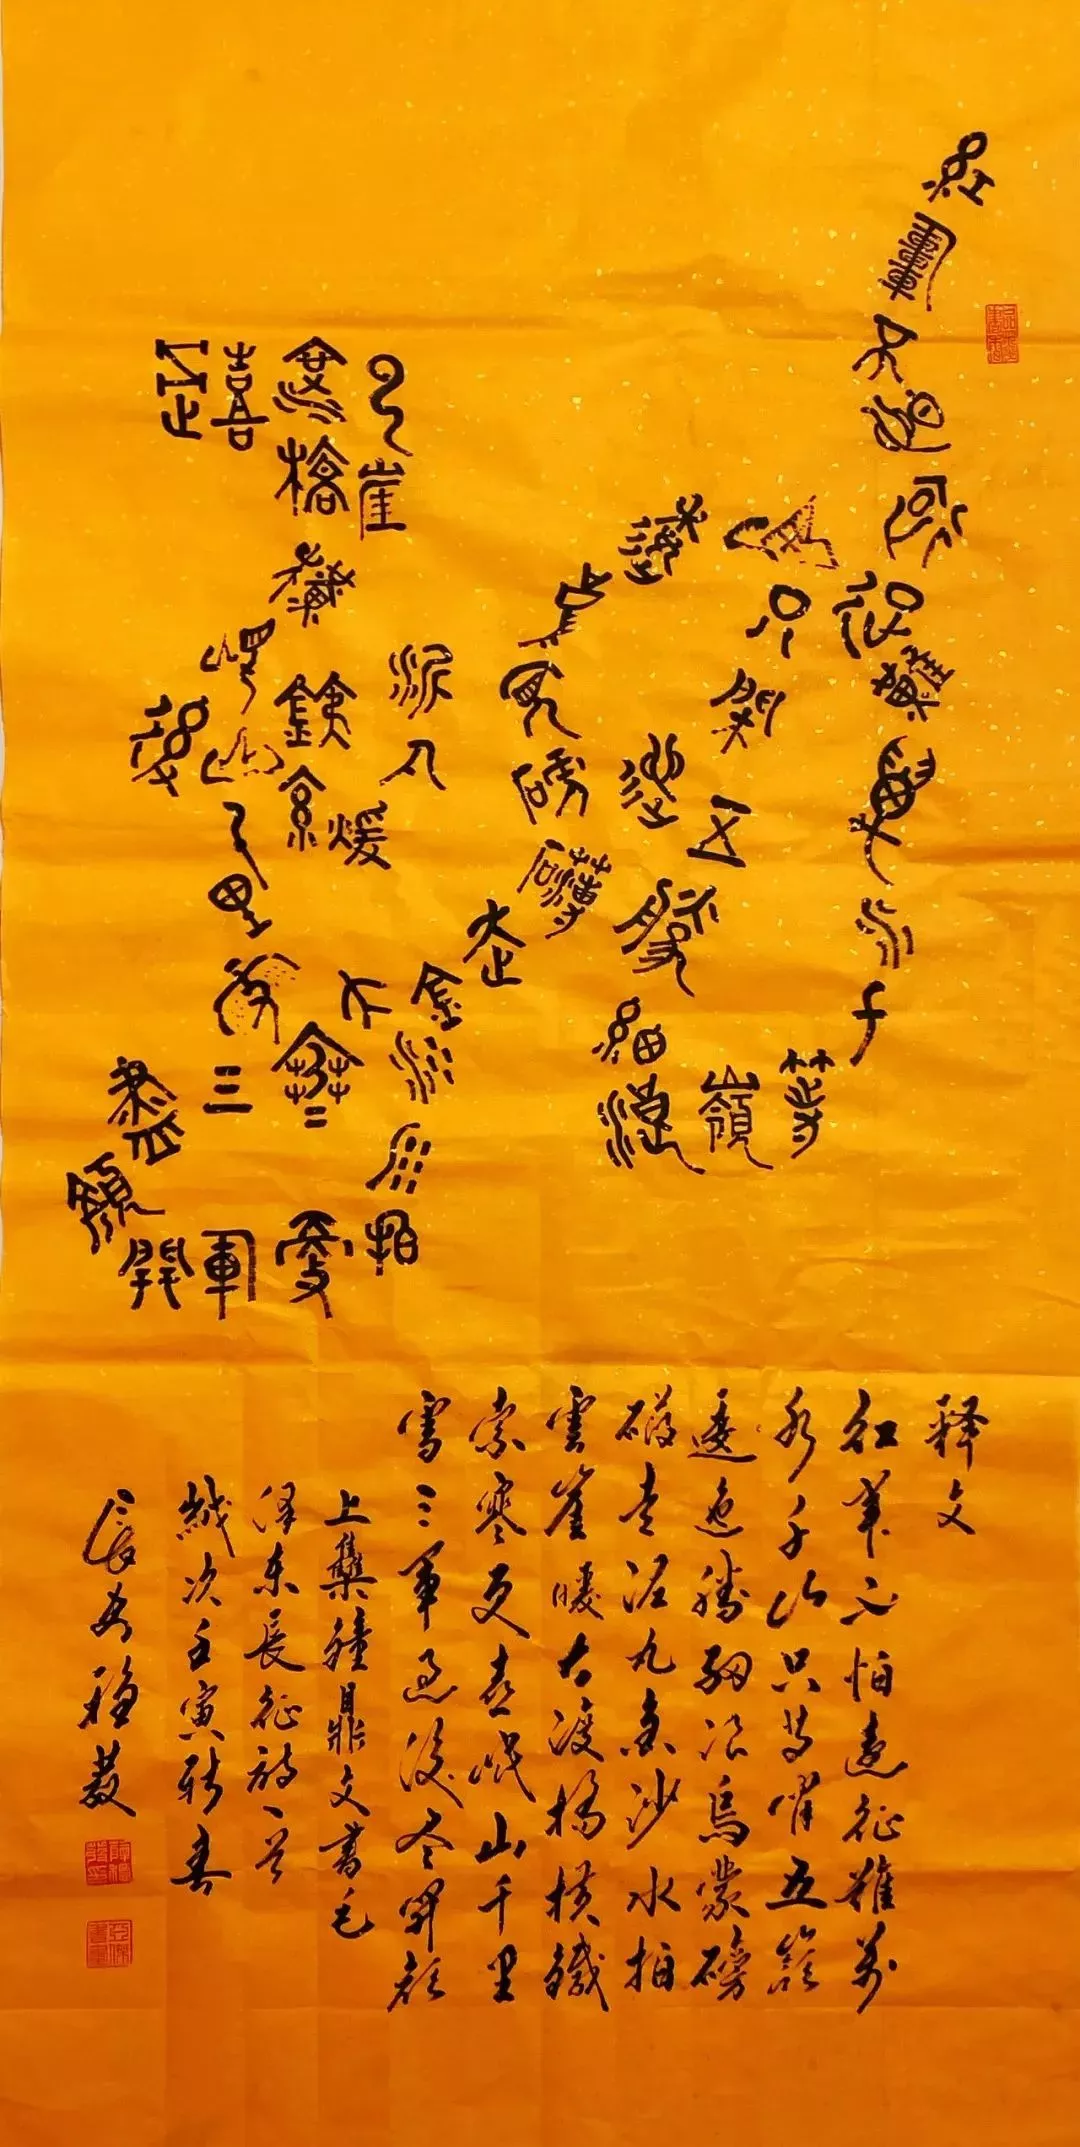 紅軍不怕遠征難萬水千
山只等閒五嶺
逶迤騰細浪
烏蒙磅礴走
泥丸金沙水拍
雲崖暖大
渡橋橫鐵索寒
更喜岷山千里雪三軍
過後盡開顏
释文
红軍不怕遠征難萬
水千山只等闲五嶺
逶迤腾細浪烏蒙磅
礴走泥丸金沙水拍
雲崖暖大渡橋横鐵
索寒更喜岷山千里
雪三軍過後尽開颜
上集鐘鼎文書毛
泽东長征詩一首
歲次壬寅新春
長安